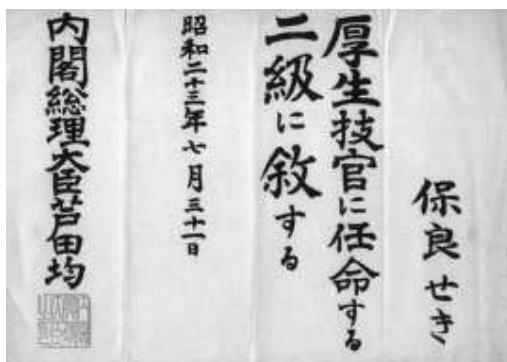 保良せき
厚生技官に任命する
二級に敘する
昭和二十三年七月三十一日
内閣総理大臣芦田均